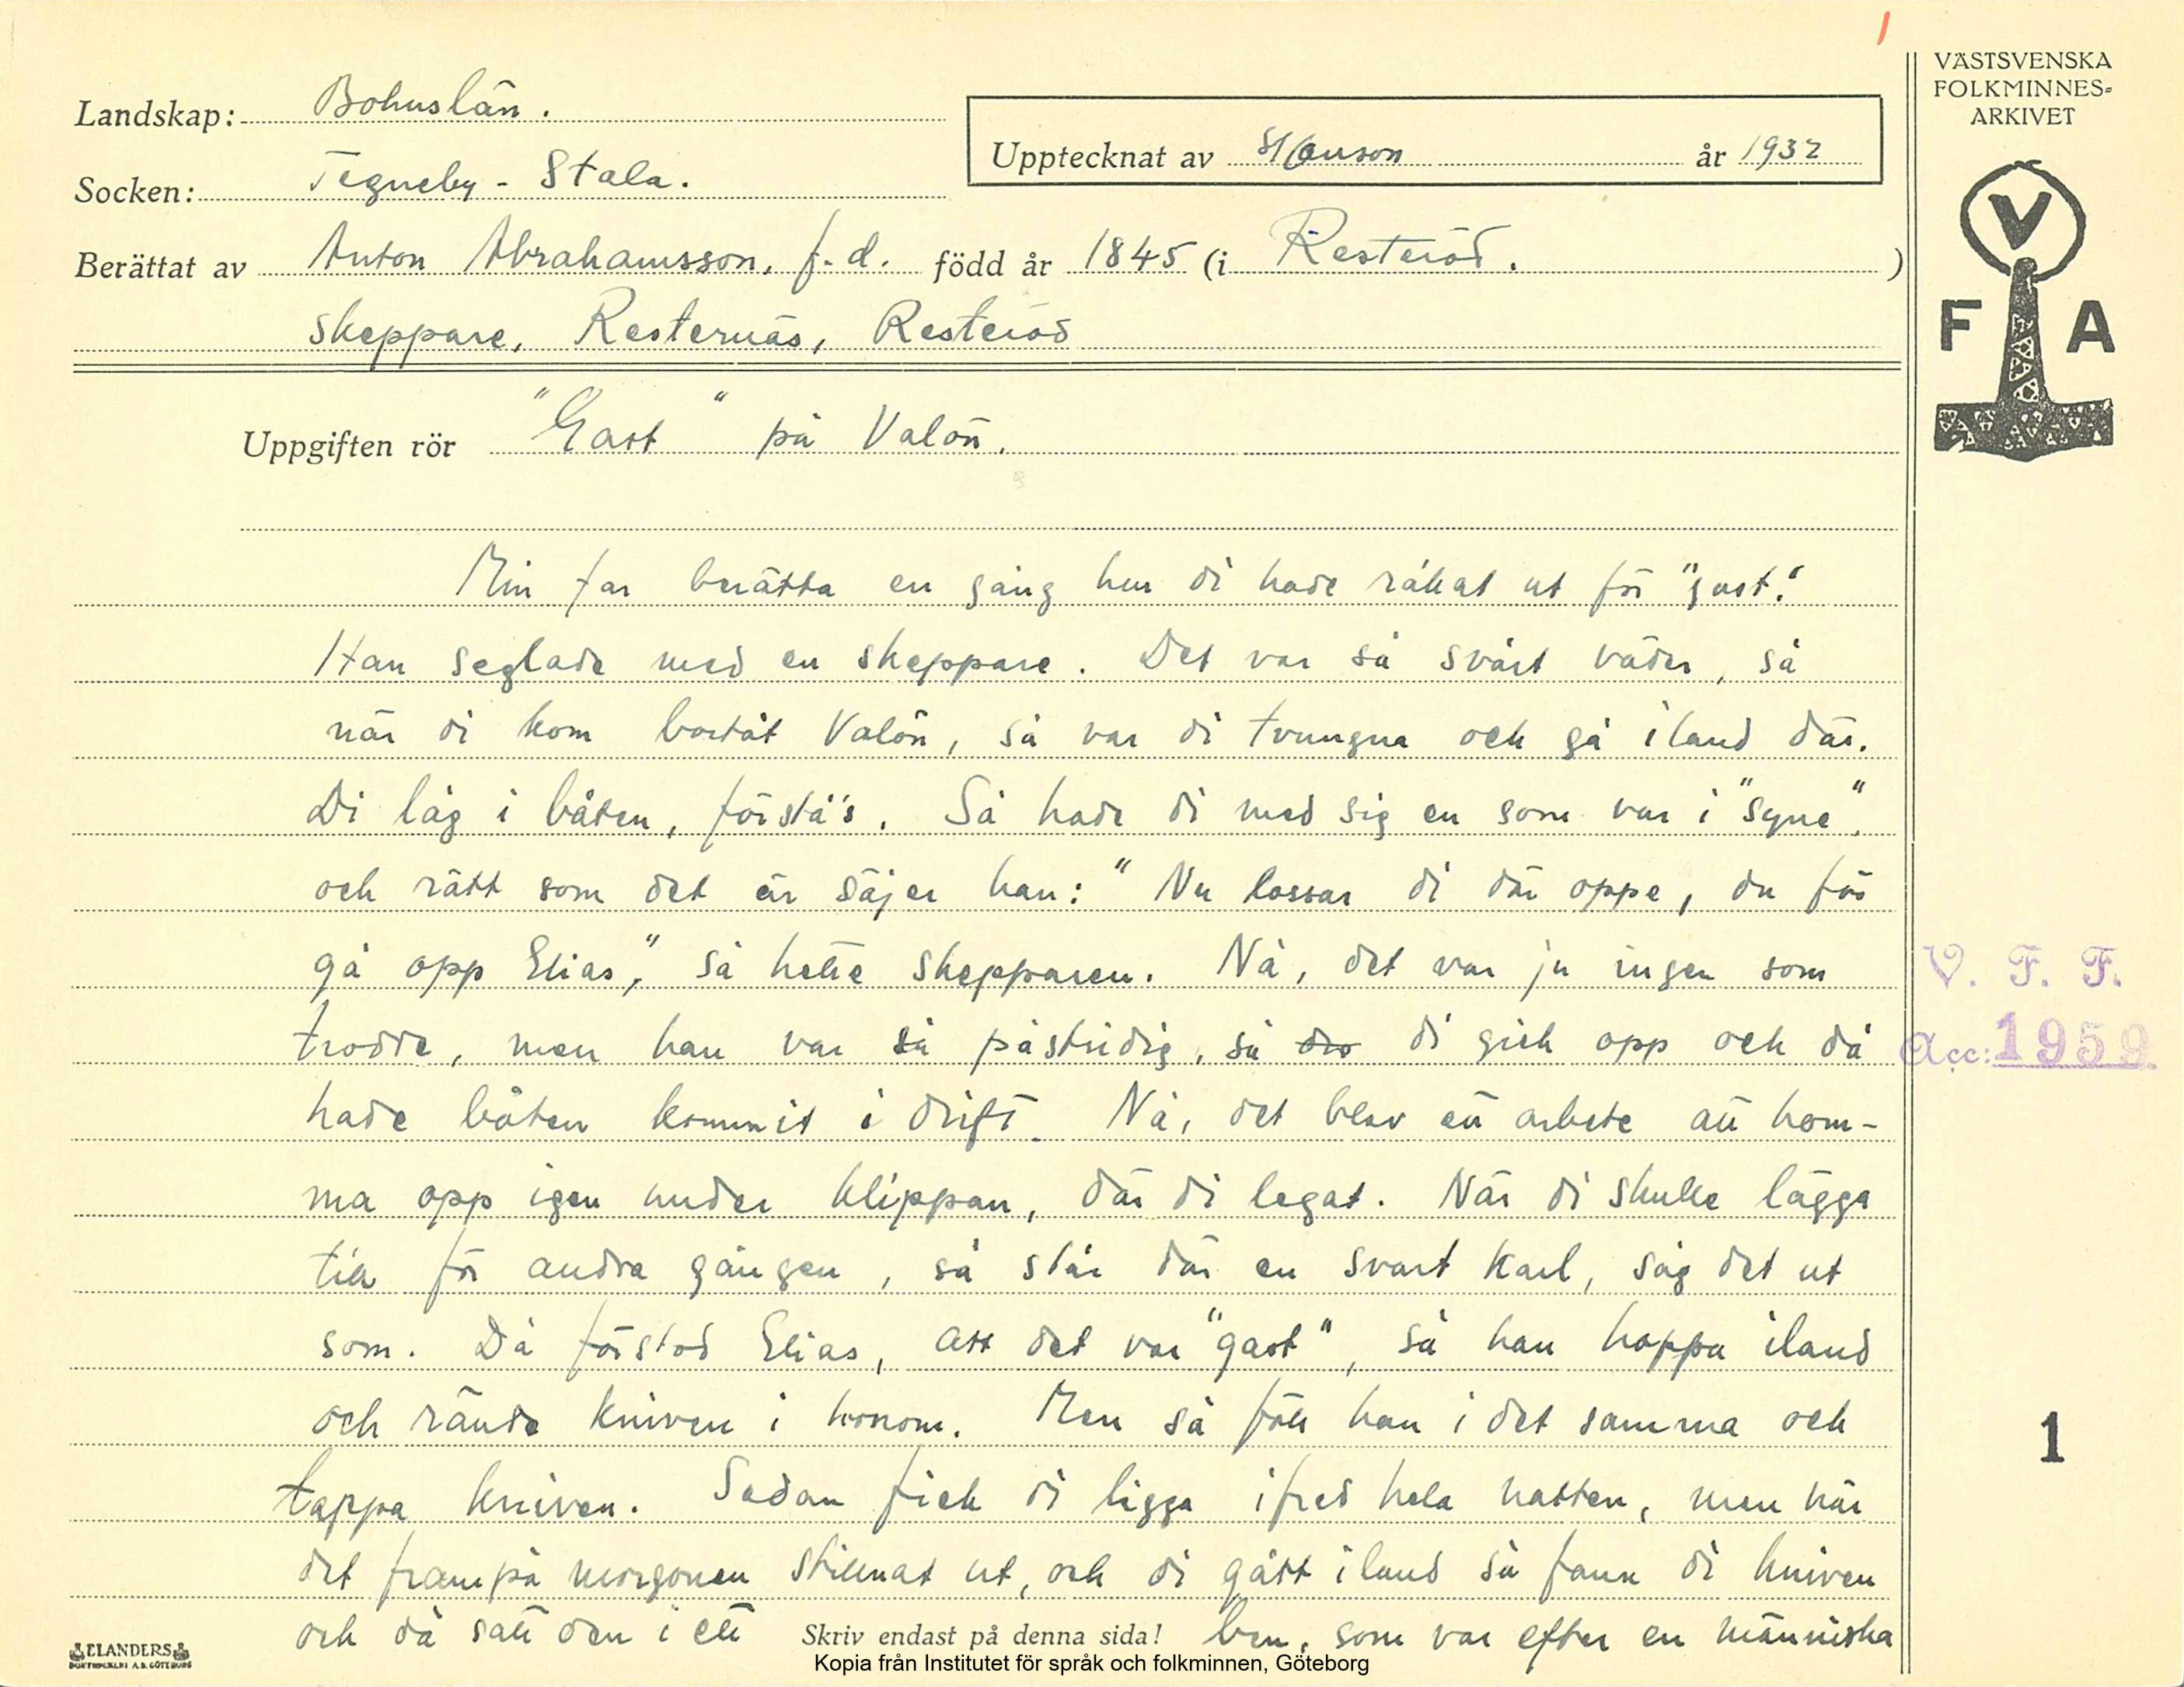 1
VÄSTSVENSKA
FOLKMINNES-
ARKIVET
Landskap: Bohuslän.
Upptecknat av år 1932
Socken: Tegneby - Stala.
Berättat av Anton Abrahamsson, f.d. född år 1845 (i Resteröd.)
skeppare, Resternäs, Resteröd
V
F A
Uppgiften rör "Gast" på Valön.
Min far berätta en gång hur di hade råkat ut för "gast".
Han seglade med en skeppare. Det var så svårt väder, så
när di kom bortåt Valön, så var di tvungna och gå iland där.
Di låg i båten, förstå's. Så hade di med sig en som var i "syne".
och rätt som det är säjer han: "Nu lossar di där oppe, du får
gå opp Elias," så hette skepparen. Nå, det var ju ingen som
trodde, men han var så påstridig, så di gick opp och då
hade båten kommit i drift. Nå, det blev ett arbete att kom-
ma opp igen under klippan, där di legat. När di skulle lägga
till för andra gången, så står där en svart karl, såg det ut
som. Då förstod Elias, att det var "gast", så han hoppa iland
och rände kniven i honom. Men så föll han i det samma och
tappa kniven. Sedan fick di ligga ifred hela natten, men när
det frampå morgonen stillnat ut, och di gått iland så fann di kniven
och då satt den i ett ben, som var efter en människa
Skriv endast på denna sida!
V. F. F.
Acc: 1959
1
ELANDERS
BOKTRYCKERI A.B. GÖTEBORG
Kopia från Institutet för språk och folkminnen, Göteborg